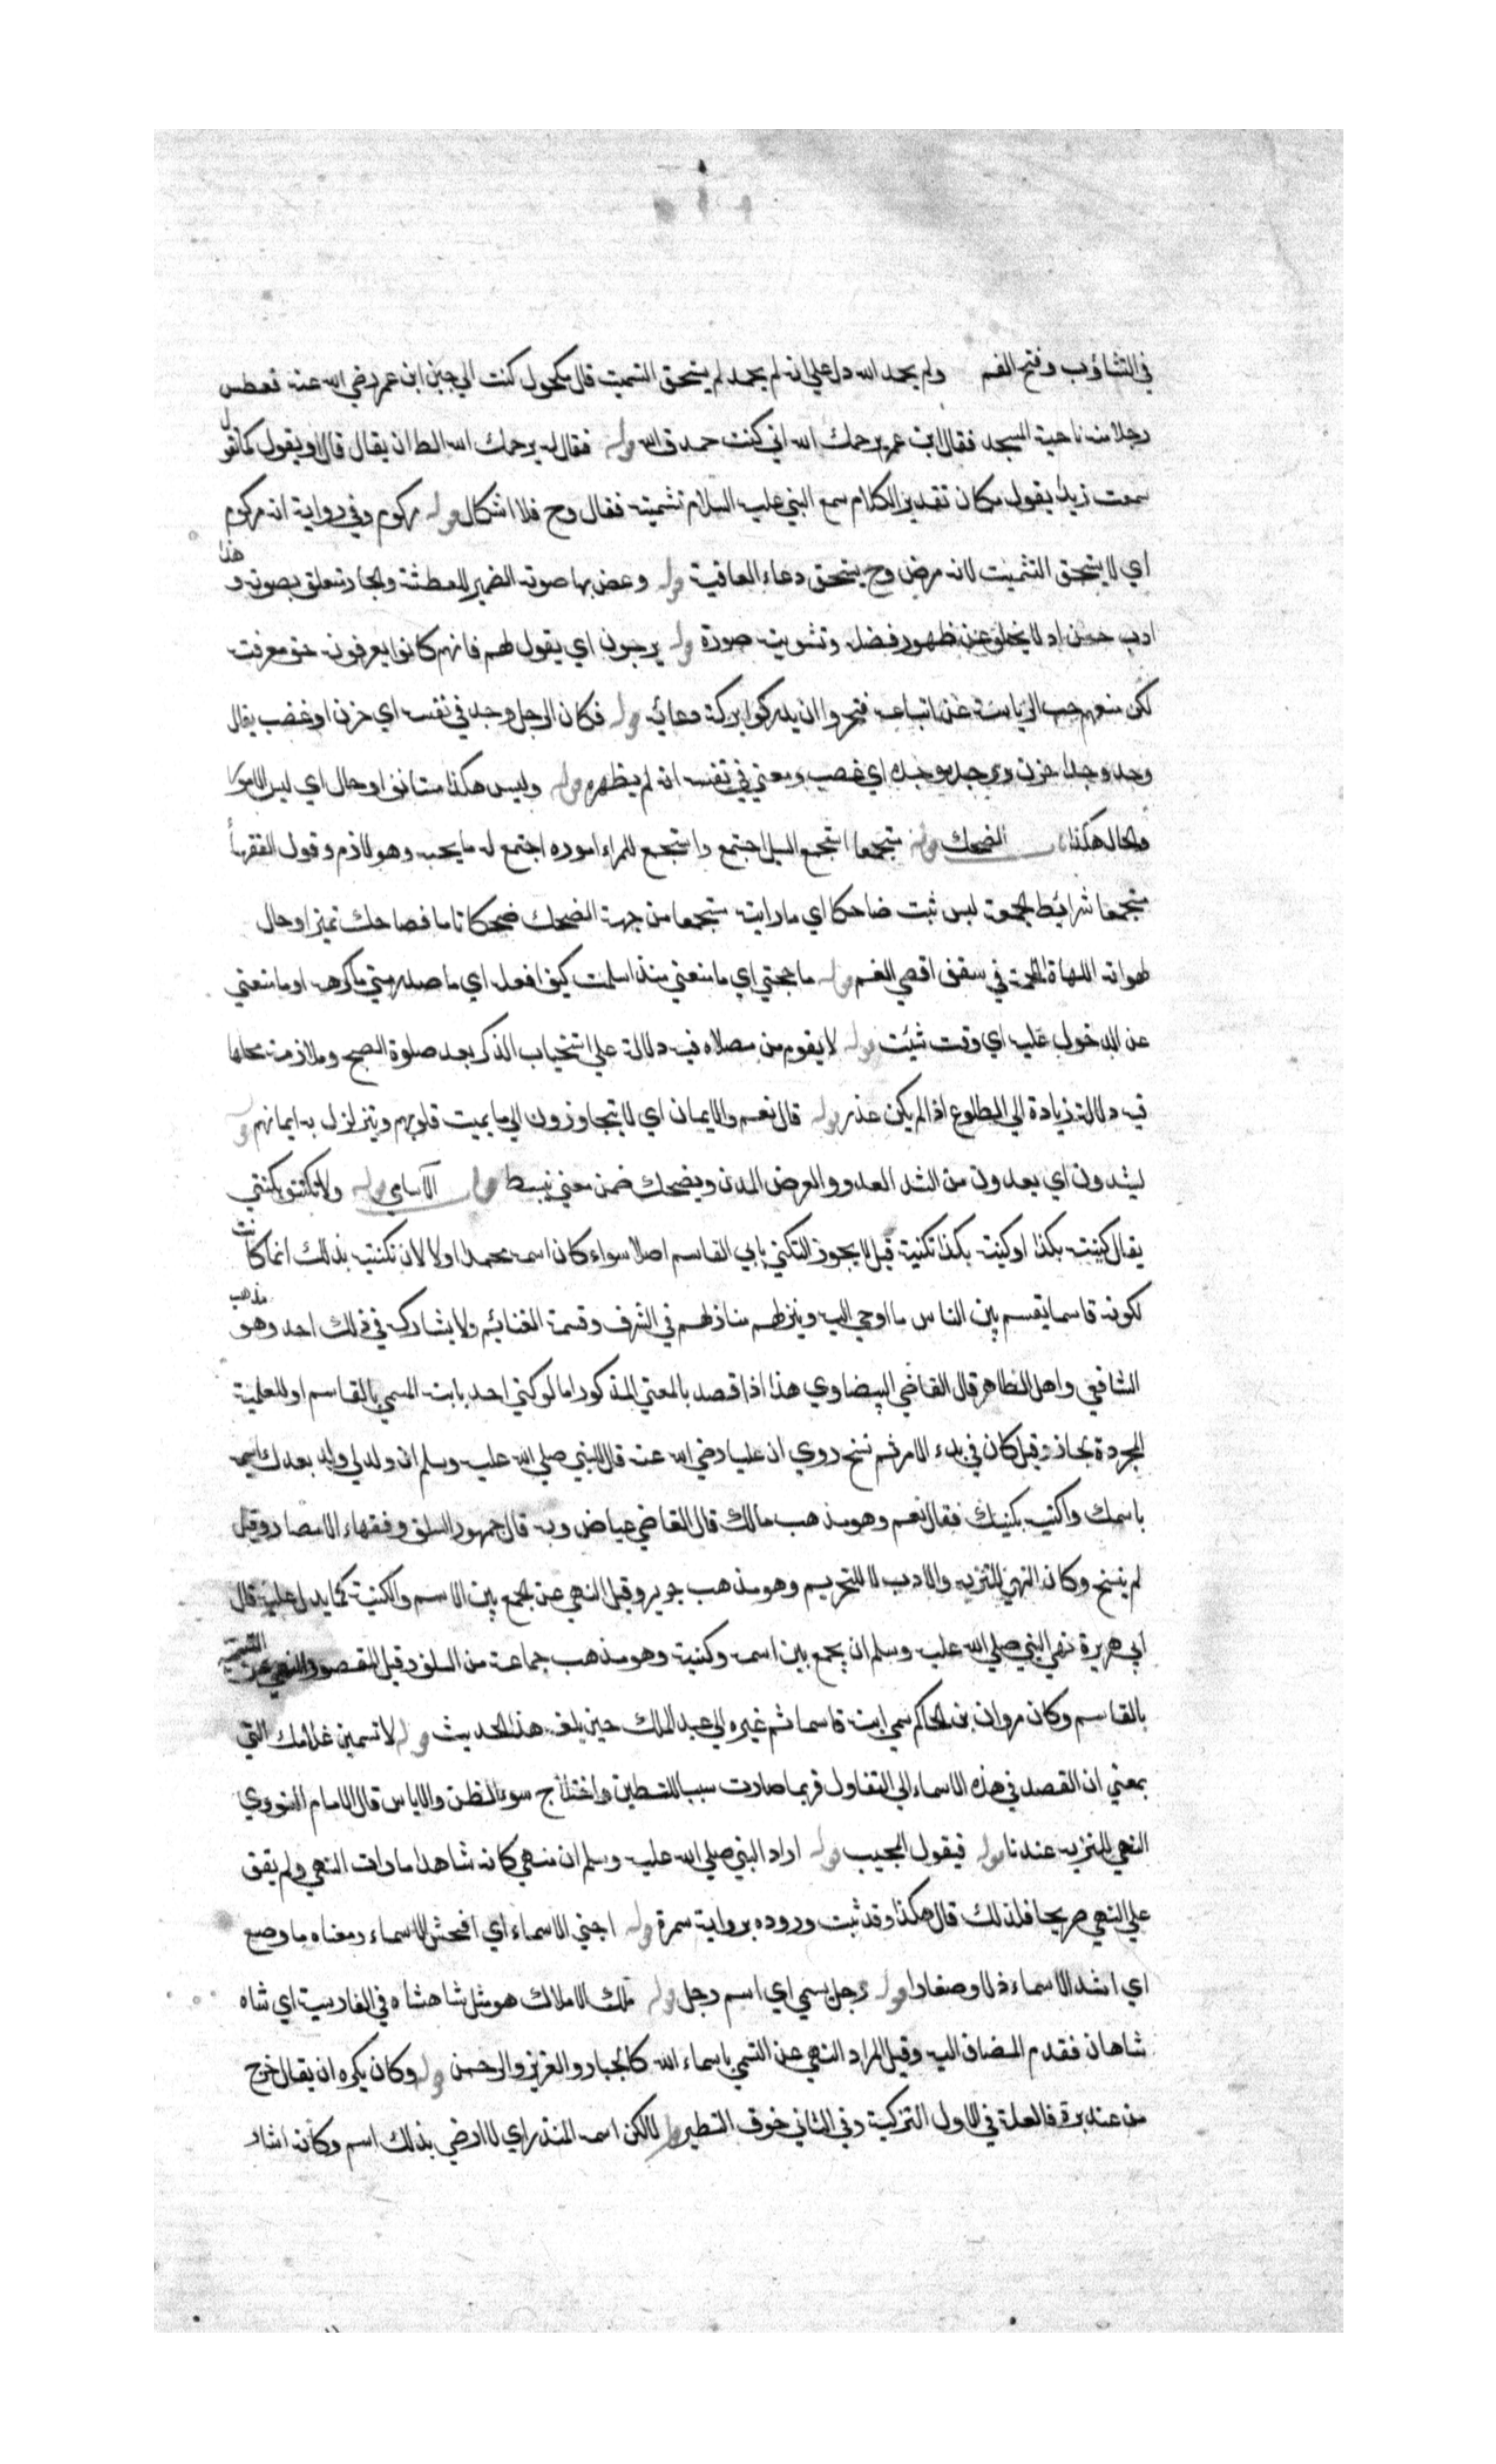 في التثاؤب وفتح الفم ولم يحمد الله دل علي ان لم يحمد لم يستحق التشميت قال مكحول كنت الي جنب ابن عمر رضي الله عنه فعطس
رجل من ناحية المسجد فقال ابن عمر يرحمك الله ان كنت حمدت الله قوله فقال له يرحمك الله الظ ان يقال قال او يقول كما تقول
سمعت زيدا يقول مكان تقدير الكلام سمع النبي عليه السلام تشميته فقال وح فلا اشكال قوله مزكوم وفي رواية انه مزكوم
اي لا يستحق التشميت لانه مرض وح يستحق دعاء العافية قوله وغض بها صوته الضمير للعطسة والجار متعلق بصوته وهذا
ادب حسن اذ لا يخلو عن ظهور فضل وتشويه صورة قوله يرجون اي يقول لهم فانهم كانوا يعرفونه حق معرفته
لكن منعهم حب الرياسة عن اتباعه فتحروا ان يدركوا بركة دعائه قوله فكان الرجل وجد في نفسه اي حزن او غضب يقال
وجد وجدا حزن ووجد موجدة اي غضب ومعني في نفسه انه لم يظهره قوله وليس هكذا مستانف او حال اي ليس الامر
والحال هكذا الضحك قوله مستجمعا استجمع السيل اجتمع واستجمع للمرء اموره اجتمع له ما يحب وهو لازم وقول الفقهاء
مستجمعا شرائط الجمعة ليس بثبت ضاحكا اي ما رايته مستجمعا من جهة الضحك ضحكا تاما فضاحكا تميز او حال
لهواته اللهاة اللحمة في سقف اقصي الفم قوله ما حجبني اي ما منعني منذ اسلمت كيف افعل اي ما صدر مني ما كرهه او ما منعني
عن الدخول عليه اي وقت شئت قوله لا يقوم من مصلاه فيه دلالة علي استحباب الذكر بعد صلوة الصبح وملازمة محلها
فيه دلالة زيادة الي الطلوع اذا لم يكن عذر قوله قال نعم والايمان اي لا يتجاوزون الي ما يميت قلوبهم ويتزلزل به ايمانهم قوله
يشدون اي يعدون من الشد العدو والغرض المدن ويضحك ضمن معني ينبسط باب الاسامي قوله ولا تكتنوا بكنيتي
يقال كنيت بكذا او كنيته بكذا تكنية قيل لا يجوز التكني بابي القاسم اصلا سواء كان اسمه محمدا او لا لان تكنيته بذلك انما كانت
لكونه قاسما يقسم بين الناس ما اوحي اليه وينزلهم منازلهم في الشرف وقسمة الغنائم ولا يشارك في ذلك احد وهو مذهب
الشافعي واهل الظاهر قال القاضي البيضاوي هذا اذا قصد بالمعني المذكور اما لو كني احد بابنه المسمي بالقاسم او للعلمية
المجردة جاز وقيل كان في بدء الامر ثم نسخ روي ان عليا رضي الله عنه قال للنبي صلي الله عليه وسلم ان ولد لي ولد بعدك اسميه
باسمك واكنيه بكنيتك فقال نعم وهو مذهب مالك قال القاضي عياض وبه قال جمهور السلف وفقهاء الامصار وقيل
لم ينسخ وكان النهي للتنزيه والادب لا للتحريم وهو مذهب جرير وقيل النهي عن الجمع بين الاسم والكنية كما يدل عليه قال
ابي هريرة نهي النبي صلي الله عليه وسلم ان يجمع بين اسمه وكنيته وهو مذهب جماعة من السلف وقيل المقصود النهي عن التسمية
بالقاسم وكان مروان بن الحاكم سمي ابنه قاسما ثم غيره الي عبد الملك حين بلغه هذا الحديث قوله لا تسمين غلامك التي
بمعني ان القصد في هذه الاسماء الي التفاول فربما صارت سببا للتطير واختلاج سوء الظن والاياس قال الامام النووي
النهي للتنزيه عندنا قوله فيقول المجيب قوله اراد النبي صلي الله عليه وسلم ان منهي كانه شاهد امارات النهي ولم يقف
علي النهي صريحا فلذلك قال هكذا وقد ثبت وروده برواية سمرة قوله اخني الاسماء اي افحش الاسماء ومعناه ما وضع
اي اشد الاسماء ذلا وصغارا قوله رجل يسمي اي اسم رجل قوله ملك الاملاك هو مثل شاهنشاه في الفارسية اي شاه
شاهان فقدم المضاف اليه وقيل المراد النهي عن التسمي باسماء الله كالجبار والعزيز والرحمن قوله وكان يكره ان يقال خرج
من عند برة فالعلة في الاول التزكية وفي الثاني خوف التطير قوله لا لكن اسمه المنذر اي لا ارضي بذلك اسم وكانه اشار